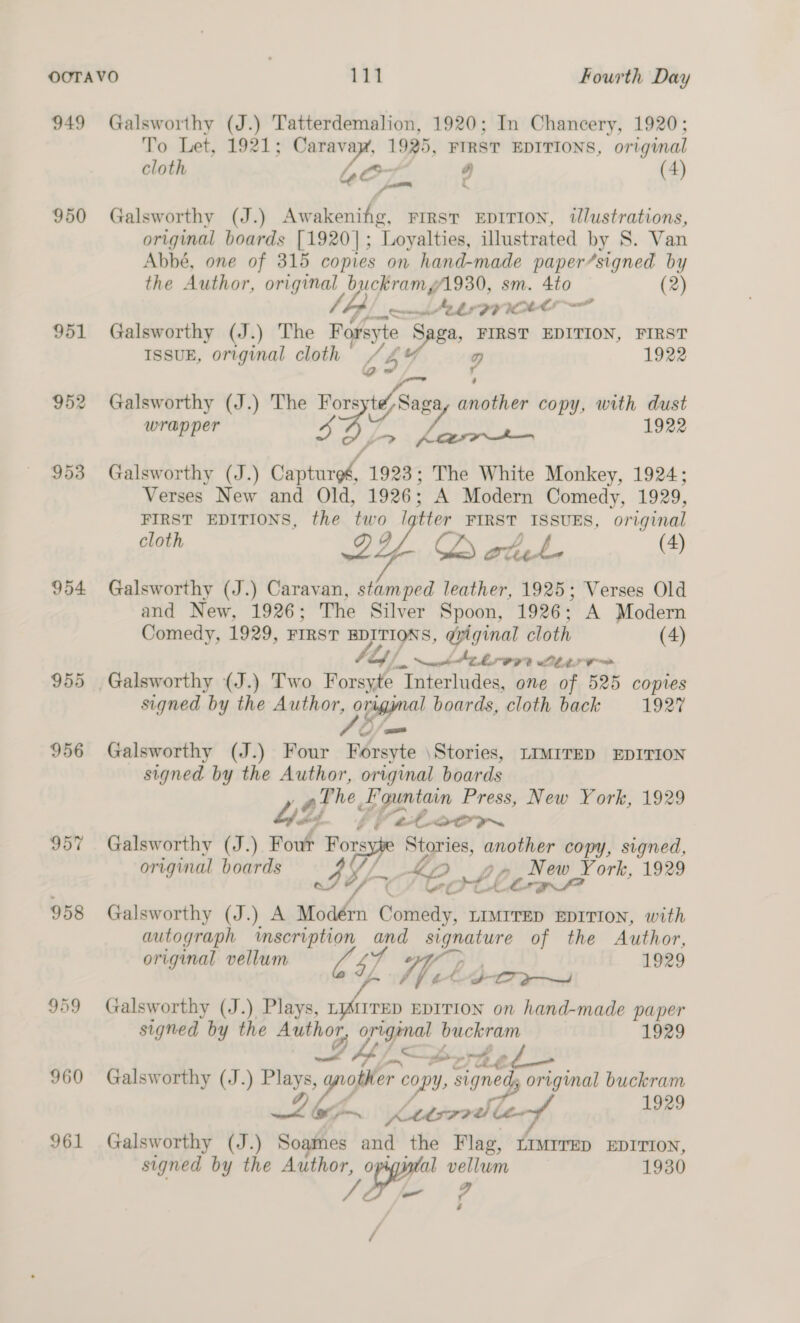 OCTAVO 111 Fourth Day
949 Galsworthy (J.) Tatterdemalion, 1920; In Chancery, 1920;
To Let, 1921; Caravan, 1925, FIRST EDITIONS, original
cloth (4)
950 Galsworthy (J.) Awakening, FIRST EDITION, illustrations,
original boards [1920]; Loyalties, illustrated by S. Van
Abbé, one of 315 copies on hand-made paper signed by
the Author, original buckram, 1930, sm. 4to (2)
951 Galsworthy (J.) The Forsyte Saga, FIRST EDITION, FIRST
ISSUE, original cloth ? 1922
952 Galsworthy (J.) The Forsyte Saga, another copy, with dust
wrapper 1922
953 Galsworthy (J.) Captures, 1923; The White Monkey, 1924;
Verses New and Old, 1926; A Modern Comedy, 1929,
FIRST EDITIONS, the two latter FIRST ISSUES, original
cloth (4)
954 Galsworthy (J.) Caravan, stamped leather, 1925; Verses Old
and New, 1926; The Silver Spoon, 1926; A Modern
Comedy, 1929, FIRST EDITIONS, original cloth (4)
955 Galsworthy (J.) Two Forsyte Interludes, one of 525 copies
signed by the Author, original boards, cloth back 1927
956 Galsworthy (J.) Four Forsyte Stories, LIMITED EDITION
signed by the Author, original boards
The Fountain Press, New York, 1929
957 Galsworthy (J.) Four Forsyte Stories, another copy, signed,
original boards New York, 1929
958 Galsworthy (J.) A Modern Comedy, LIMITED EDITION, with
autograph inscription and signature of the Author,
original vellum 1929
959 Galsworthy (J.) Plays, LIMITED EDITION on hand-made paper
signed by the Author, original buckram 1929
960 Galsworthy (J.) Plays, another copy, signed, original buckram
1929
961 Galsworthy (J.) Soames and the Flag, LIMITED EDITION,
signed by the Author, original vellum 1930
?